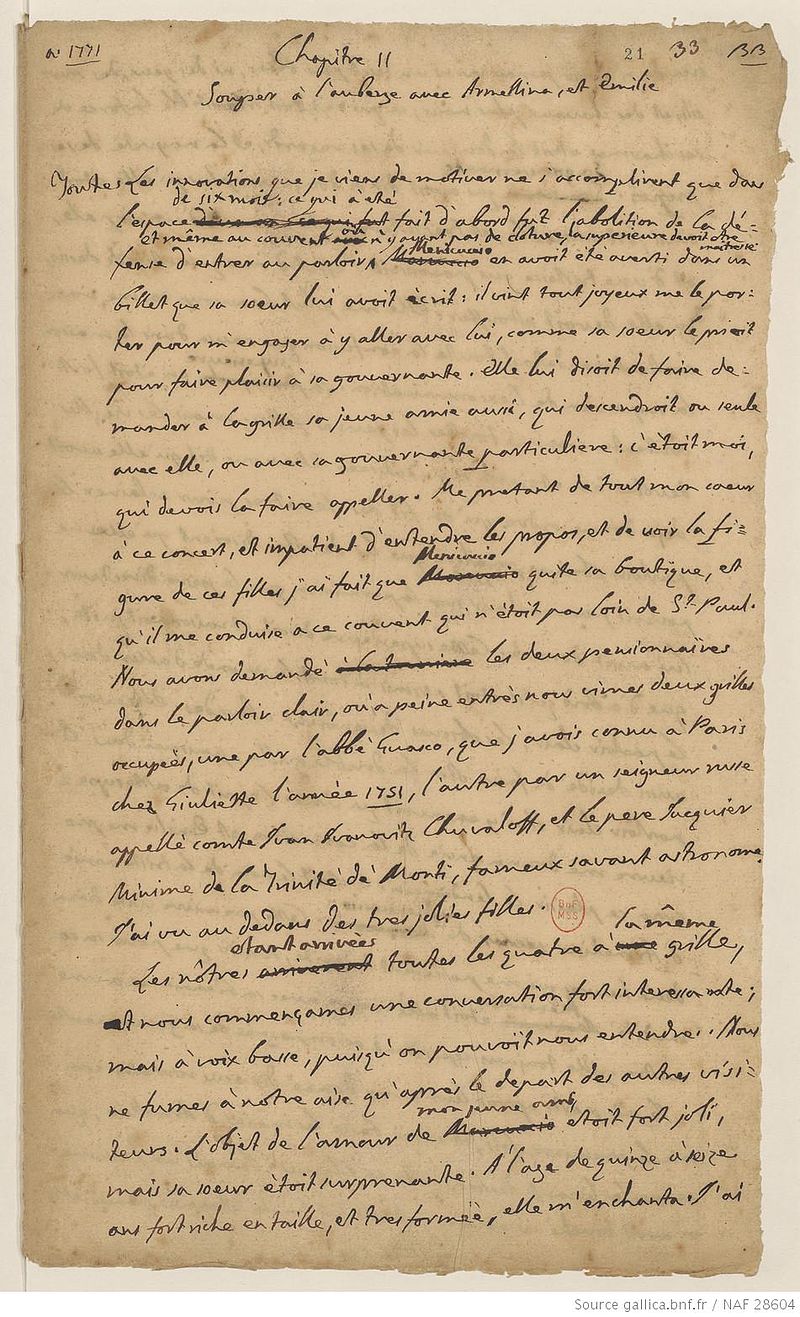 a: 1771
Chapitre II
21 33 BB
Souper à l'auberge avec Armellina, et Emilie
Toutes Les innovations que je viens de motiver ne s'accomplirent que dans
de six mois: ce qui à eté
l'espace fait d'abord fut l'abolition de la dé=
et même au couvent où n'y ayant pas de cloture, la superieure devoit être
maitresse
Menicuccio
fense d'entrer au parloir, en avoit été averti dans un
billet que sa soeur lui avoit ècrit: il vint tout joyeux me le por=
ter pour m'engager à y aller avec lui, comme sa soeur le prioit
pour faire plaisir à sa gouvernante. Elle lui disoit de faire de=
mander à la grille sa jeune amie aussi, qui descendroit ou seule
avec elle, ou avec sa gouvernante particuliere: c'étoit moi,
qui devois la faire appeller. Me pretant de tout mon coeur
à ce concert, et impatient d'entendre les propos, et de voir la fi=
Menicuccio
gure de ces filles j'ai fait que quite sa boutique, et
qu'il me conduise a ce couvent qui n'étoit pas loin de St. Paul.
Nous avons demandé les deux pensionnaires
dans le parloir clair, où a peine entrès nous vimes deux grilles
occupeès, une par l'abbé Guasco, que j'avois connu à Paris
chez Giuliette l'année 1751, l'autre par un seigneur russe
appellé comte Ivan Ivanovitz Chuvaloff, et le pere Jacquier
Minime de la Trinité dé Monti, fameux savant astronome.
J'ai vu au dedans des tres jolies filles.
BnF
MSS
etant arriveès la même
Les nôtres arriverent toutes les quatre à une grille,
et nous commençames une conversation fort interessante;
mais à voix basse, puisqu'on pouvoit nous entendre. Nous
ne fumes à notre aise qu'après le depart des autres visi=
mon jeune ami
teurs. L'objet de l'amour de etoit fort joli,
mais sa soeur étoit surprenante. A l'age de quinze à seize
ans fort riche en taille, et tres formeè, elle m'enchanta. J'ai
Source gallica.bnf.fr / NAF 28604